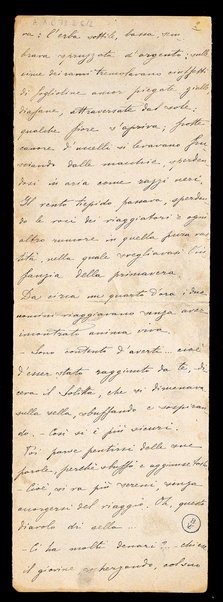 va: l'erba sottile, bassa, sem
brava spruzzata d'argento; sulle
cime dei rami tremolavano ciuffetti
di foglioline ancor piegate, gialle
diafane, attraversate dal sole.
qualche fiore s'apriva; frotte
canore d'uccelli si levavano
dalle macchie, sperden
dosi in aria come razzi neri.
Il vento tiepido passava, sperden
do le voci dei viaggiatori e ogni
altro rumore in quella pura vas
tità nella quale svegliavasi l'in
fanzia della primavera.
Da circa un quarto d'ora i due
uomini viaggiavano senza aver
incontrato anima viva.
– Sono contento d'averti... cioè
d'esser stato raggiunto da te, di
ceva il che si dimenava
sulla sella, sbuffando e sospiran
do. – Così si è più sicuri.
Poi parve pentirsi delle sue
parole, perchè sbuffò e aggiunse tosto
– Cioè, si va più sereni, senza
accorgersi del viaggio. Oh, questo
diavolo di sella...
– Ci ha molti denari? – chiese
il giovine scherzando, col suo